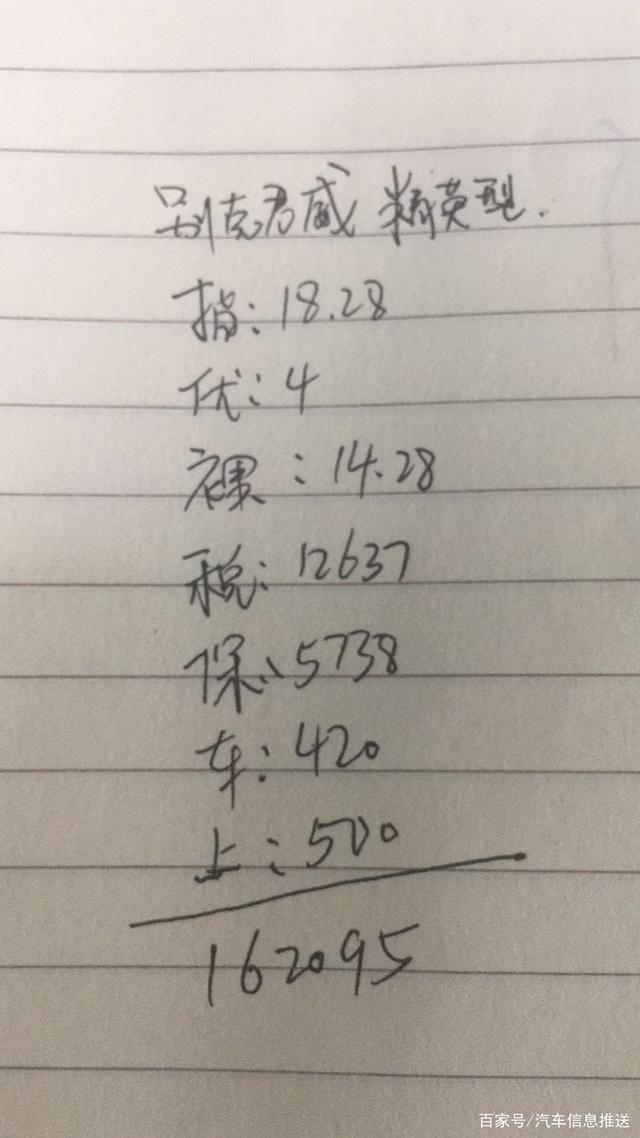 别克君威 精英型.
指: 18.28
优: 4
裸: 14.28
税: 12637
保: 5738
车: 420
上: 500
162095
百家号/汽车信息推送